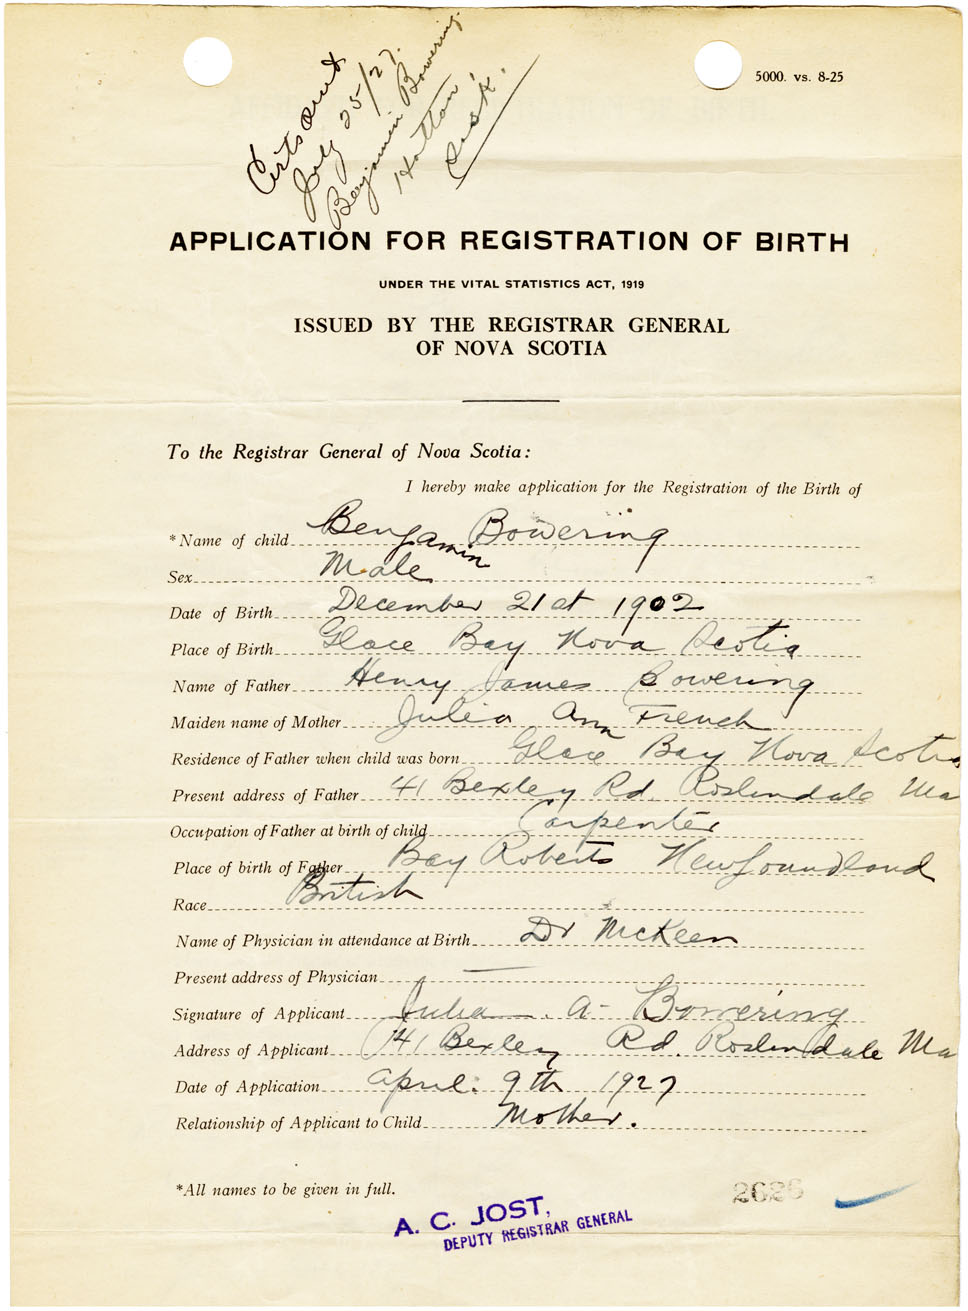 Certs sent
July 25/27.
Benjamin Bowering.
Hatton
Sask.
5000. vs. 8-25
APPLICATION FOR REGISTRATION OF BIRTH
UNDER THE VITAL STATISTICS ACT, 1919
ISSUED BY THE REGISTRAR GENERAL
OF NOVA SCOTIA
To the Registrar General of Nova Scotia:
I hereby make application for the Registration of the Birth of
*Name of child Benjamin Bowering
Sex Male
Date of Birth December 21st 1902
Place of Birth Glace Bay Nova Scotia
Name of Father Henry James Bowering
Maiden name of Mother Julia Ann French
Residence of Father when child was born Glace Bay Nova Scotia
Present address of Father 41 Bexley Rd. Roslindale Ma
Occupation of Father at birth of child Carpenter
Place of birth of Father Bay Roberts Newfoundland
Race British
Name of Physician in attendance at Birth Dr McKeen
Present address of Physician —
Signature of Applicant Julia A- Bowering
Address of Applicant 41 Bexley Rd. Roslindale Ma
Date of Application April. 9th 1927
Relationship of Applicant to Child Mother.
*All names to be given in full.
2626
A. C. JOST,
DEPUTY REGISTRAR GENERAL